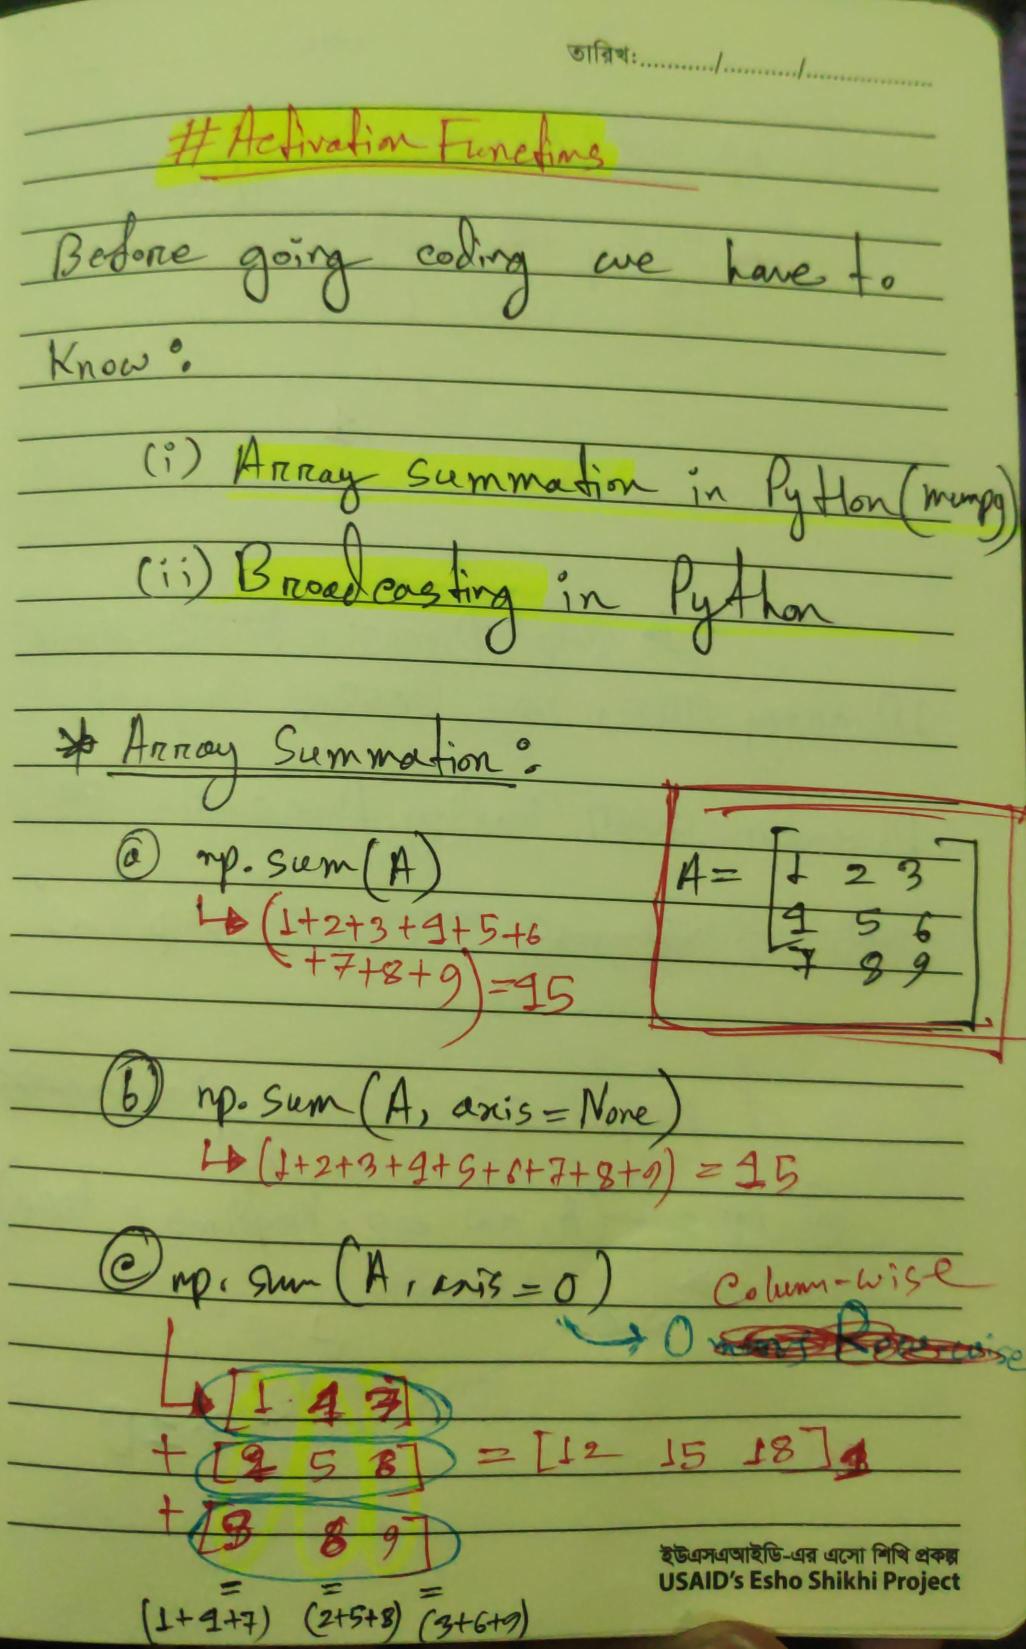 তারিখ:............/............/....................
# Activation Functions
Before going coding we have to
Know :
(i) Array Summation in Python (numpy)
(ii) Broadcasting in Python
* Array Summation :
(a) np.sum(A)
↳ (1+2+3+4+5+6
+7+8+9) = 45
A = [1 2 3
4 5 6
7 8 9]
(b) np.sum(A, axis = None)
↳ (1+2+3+4+5+6+7+8+9) = 45
(c) np.sum(A, axis = 0)
Column-wise
→ 0
↳ [1 4 7]
+ [2 5 8] = [12 15 18]
+ [ 8 9]
= = =
(1+4+7) (2+5+8) (3+6+9)
ইউএসএআইডি-এর এসো শিখি প্রকল্প
USAID's Esho Shikhi Project